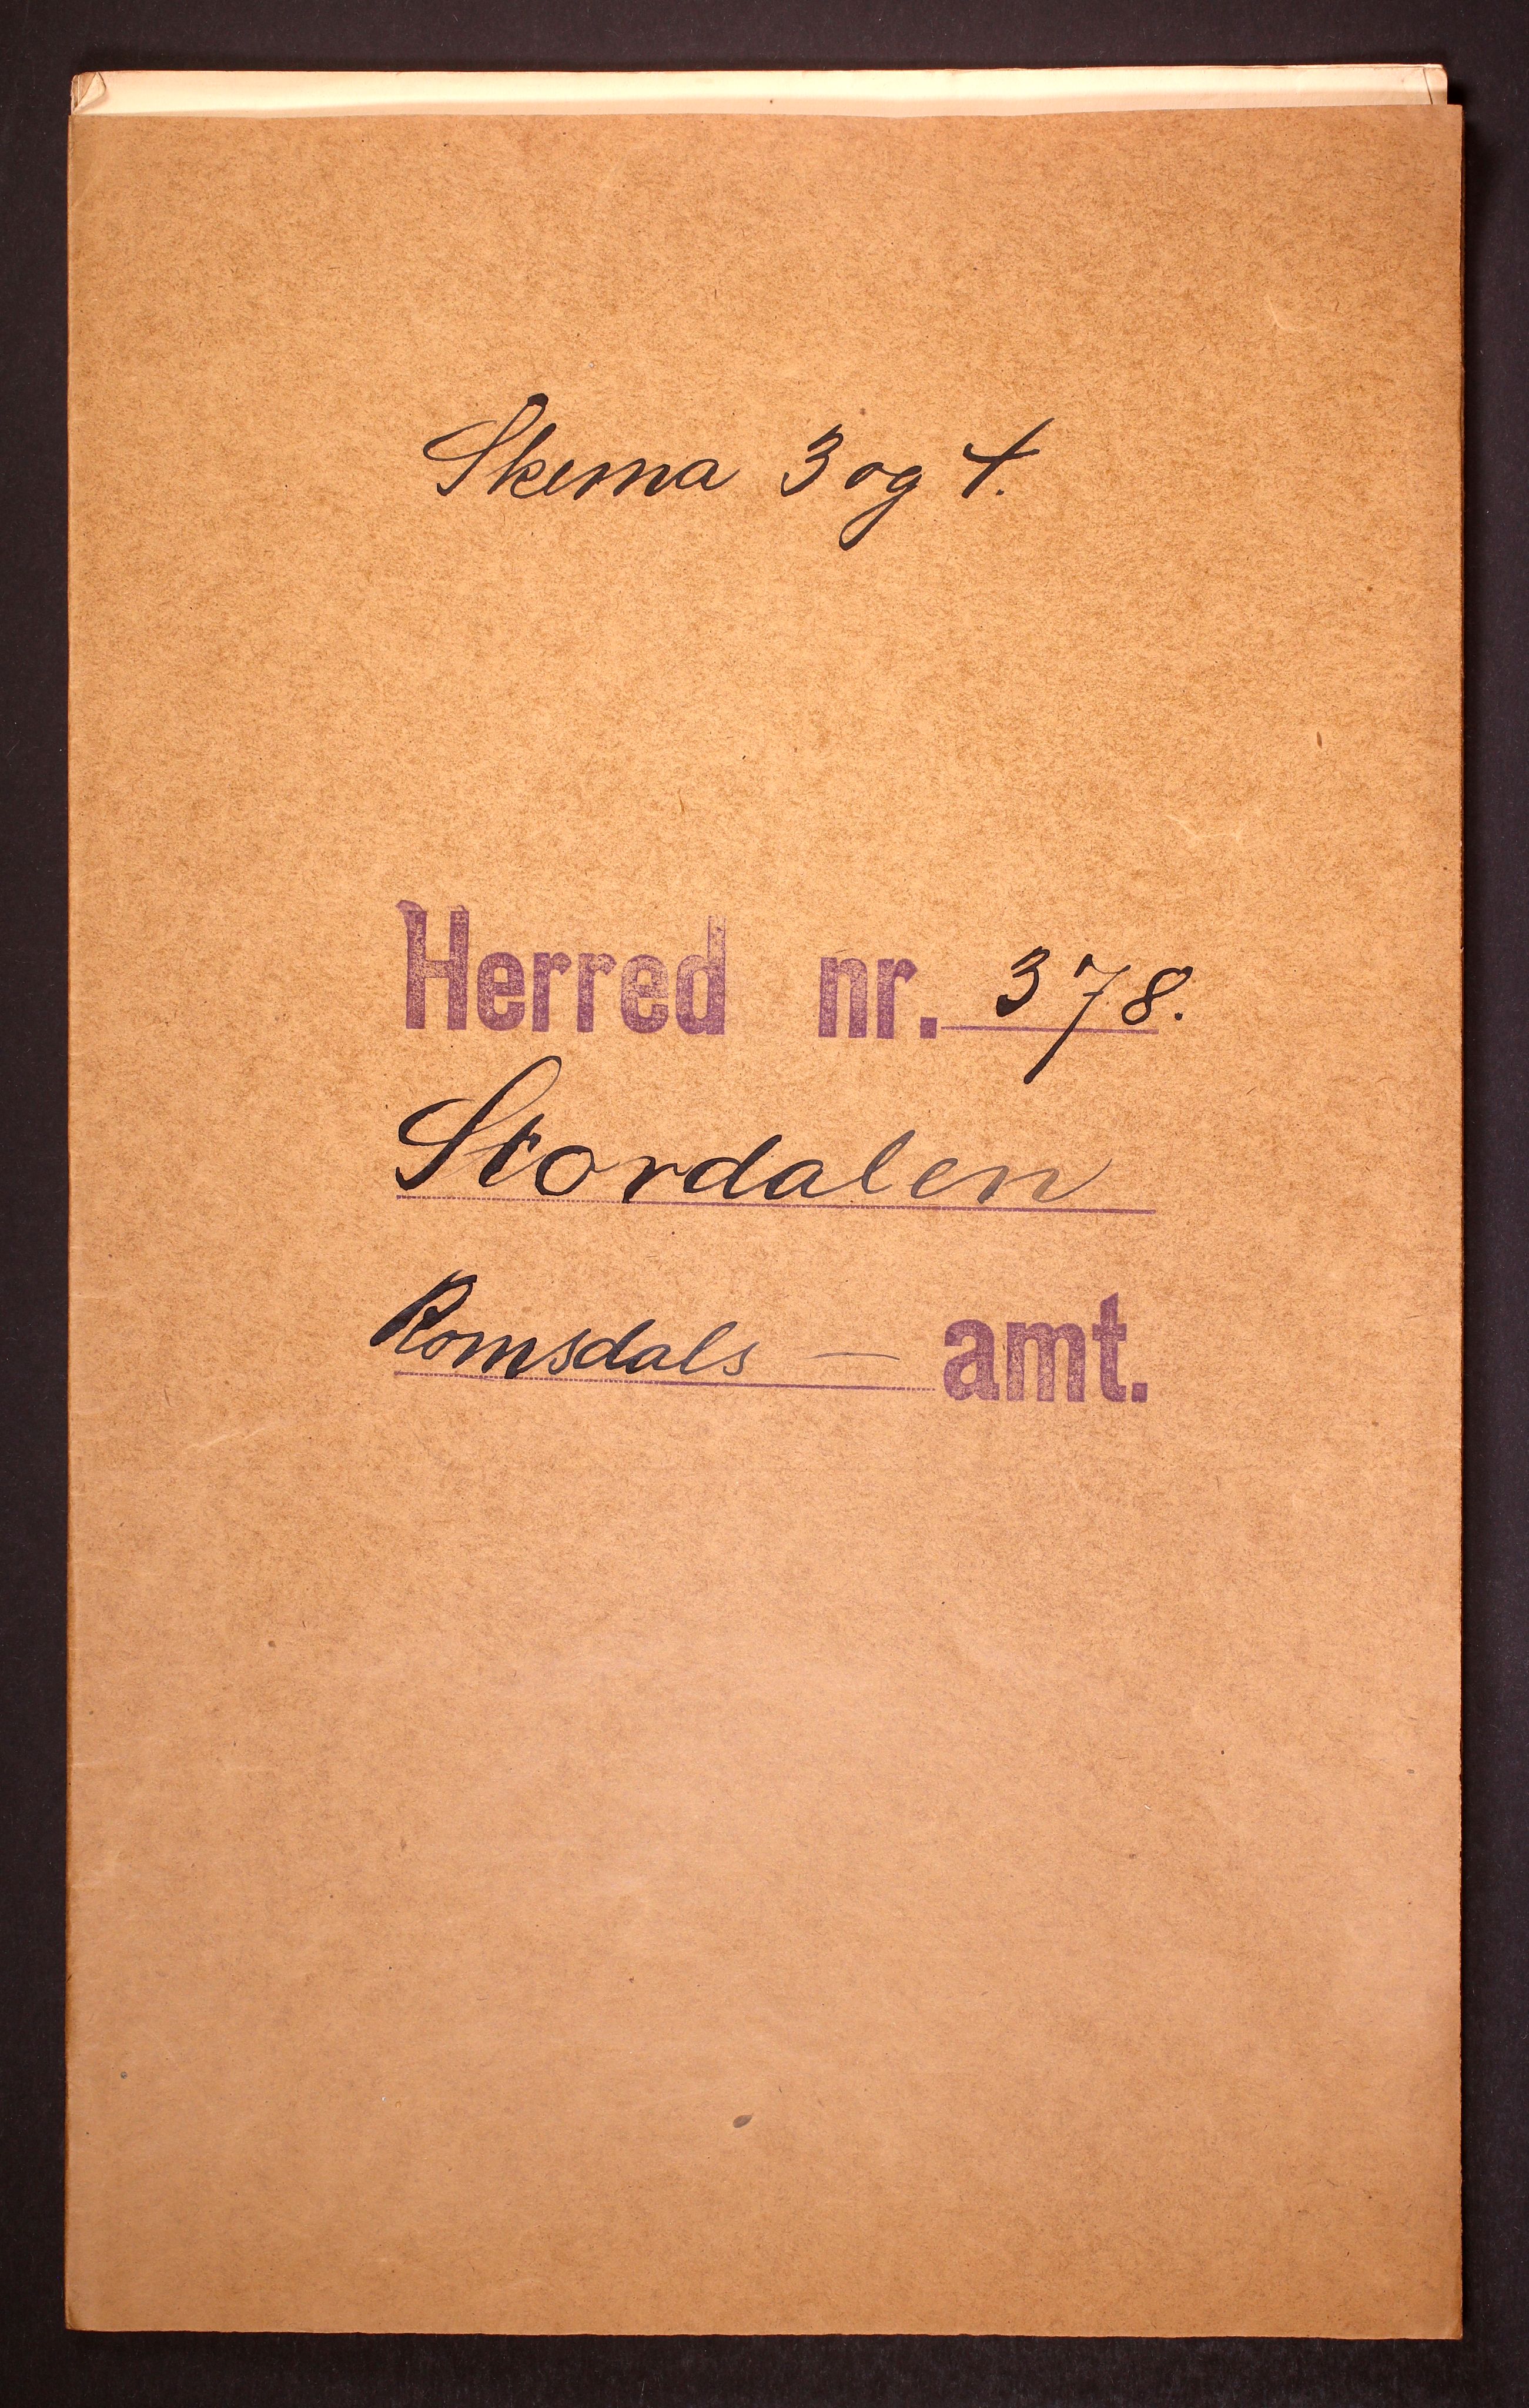 Skema 3 og 4.
Herred nr. 378.
Stordalen
Romsdals - amt.